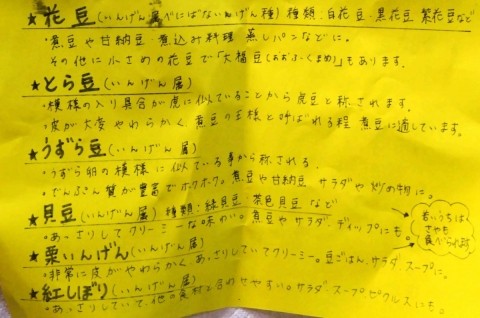 ★花豆(いんげん属べにばないんげん種) 種類:白花豆・黒花豆 紫花豆など
・煮豆や甘納豆・煮込み料理 蒸しパンなどに。
その他に小さめの花豆で「大福豆(おおふくまめ)」もあります。
★とら豆(いんげん属)
・模様の入り具合が虎に似ていることから虎豆と称されます。
・皮が大変やわらかく、煮豆の王様と呼ばれる程 煮豆に適しています。
★うずら豆(いんげん属)
・うずら卵の模様に似ている事から称される。
・でんぷん質が豊富でホクホク。煮豆や甘納豆 サラダや炒め物に。
★貝豆(いんげん属) 種類:緑貝豆・茶色貝豆 など
・あっさりしてクリーミーな味わい。煮豆やサラダ、ディップにも。
若いうちは
さやも
食べられる
★栗いんげん(いんげん属)
・非常に皮がやわらかく、あっさりしていてクリーミー。豆ごはん、サラダ、スープに。
★紅しぼり(いんげん属)
・あっさりしていて、他の食材と合わせやすい。サラダ、スープ、ピクルスにも。